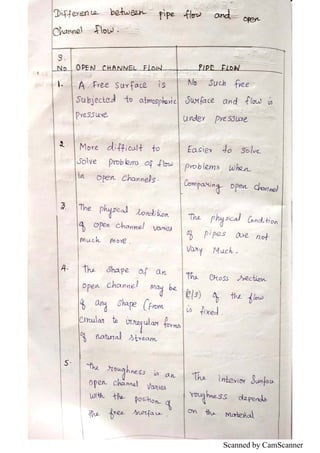 Difference between pipe flow and open
Channel flow.
S.
No OPEN CHANNEL FLOW PIPE FLOW
1. A Free Surface is No Such free
Subjected to atmospheric Surface and flow is
Pressure under pressure
2. More difficult to Easier to solve
Solve problems of flow problems when
in open Channels. Comparing open channel
3. The physical Condition The physical Condition
of open channel varies of pipes are not
much more. Vary Much.
4. The shape of an The Cross section
open channel may be (c/s) of the flow
of any shape (from is fixed.
Circular to irregular forms
of natural stream
5. The roughness is an The interior Surface
open channel varies roughness depends
with the position of on the Material
the free surface
Scanned by CamScanner